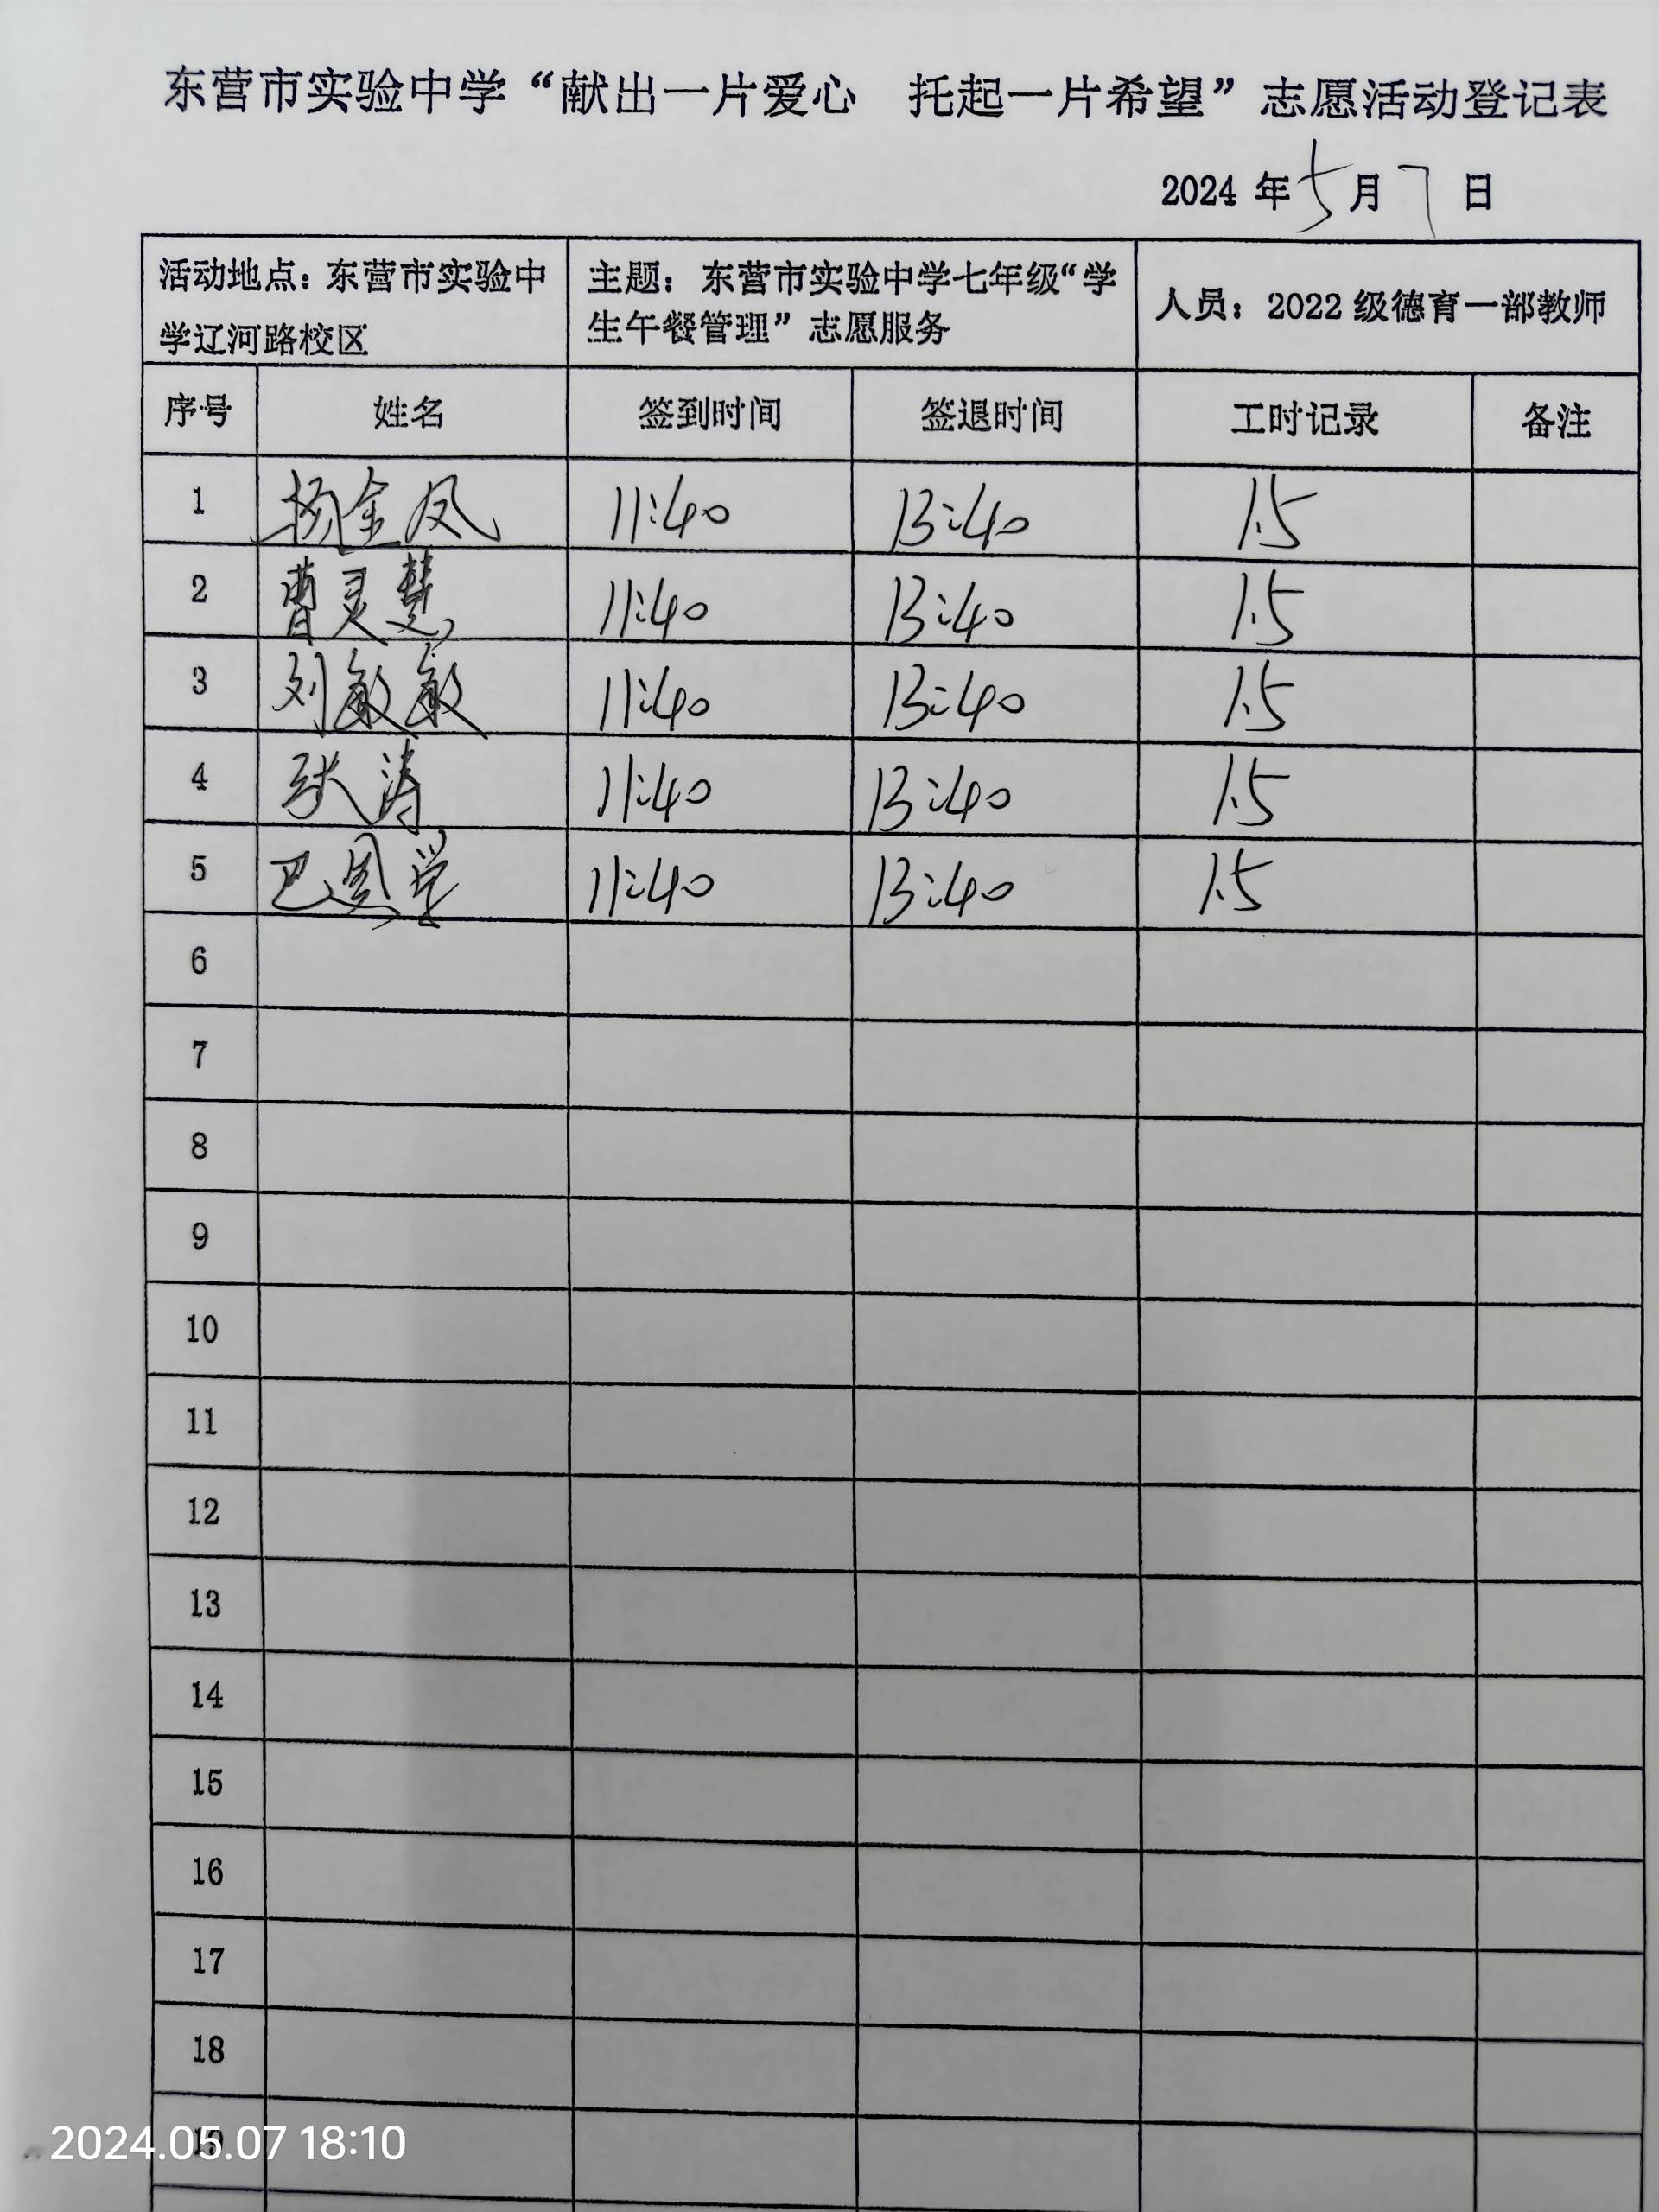 东营市实验中学“献出一片爱心 托起一片希望”志愿活动登记表
2024 年 5 月 7 日
活动地点：东营市实验中
学辽河路校区
主题：东营市实验中学七年级“学
生午餐管理”志愿服务
人员：2022 级德育一部教师
序号 姓名 签到时间 签退时间 工时记录 备注
1 杨金凤 11:40 13:40 1.5
2 曹灵慧 11:40 13:40 1.5
3 刘敏敏 11:40 13:40 1.5
4 张涛 11:40 13:40 1.5
5 巴学 11:40 13:40 1.5
6
7
8
9
10
11
12
13
14
15
16
17
18
19
2024.05.07 18:10